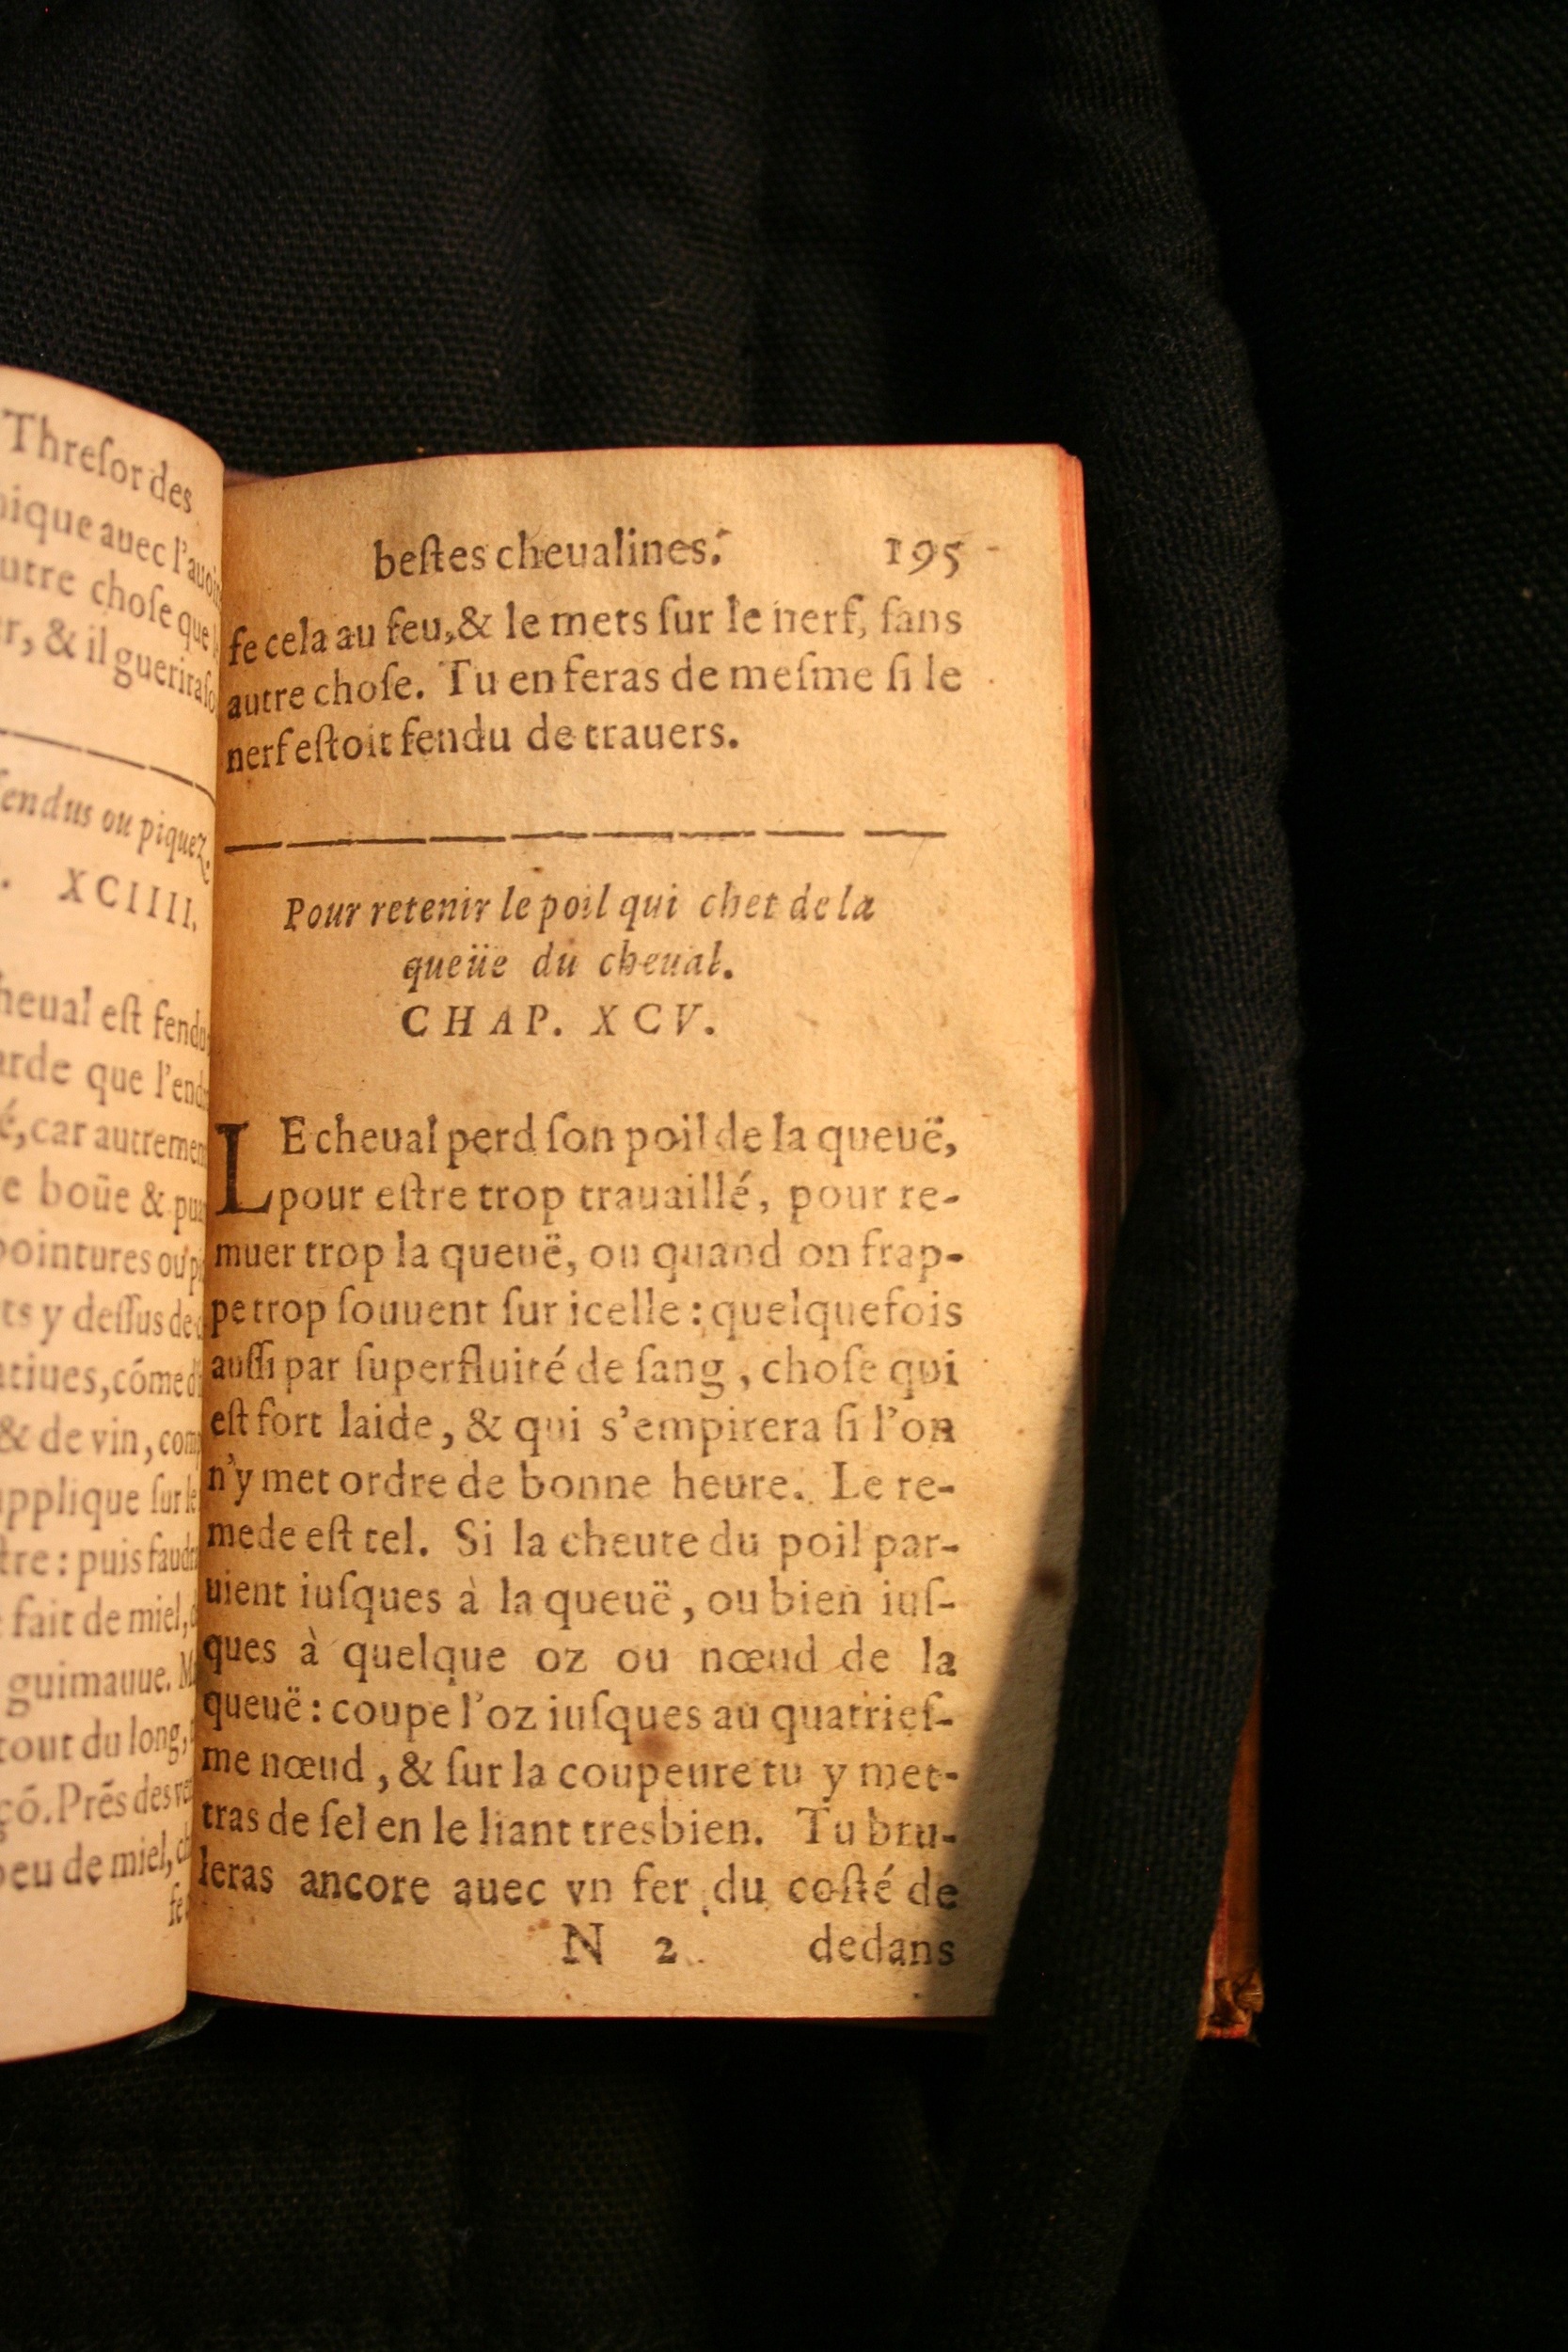 Threſor des
ique auec l'auoi
utre choſe que
r, & il guerira
endus ou piquez.
. XCIIII.
heual eſt fendu
arde que l'end
é, car autremen
e boüe & pua
pointures ou
ts y deſſus de
atiues, cóme
& de vin, com
applique ſur le
tre : puis faud
fait de miel,
guimauue.
tout du long,
çó. Prés des
peu de miel,
ſe
beſtes cheualines. 195
ſe cela au feu, & le mets ſur le nerf, ſans
autre choſe. Tu en feras de meſme ſi le
nerf eſtoit fendu de trauers.
Pour retenir le poil qui chet de la
queüe du cheual.
CHAP. XCV.
LE cheual perd ſon poil de la queuë,
pour eſtre trop trauaillé, pour re-
muer trop la queuë, ou quand on frap-
pe trop ſouuent ſur icelle : quelquefois
auſſi par ſuperfluité de ſang, choſe qui
eſt fort laide, & qui s'empirera ſi l'on
n'y met ordre de bonne heure. Le re-
mede eſt tel. Si la cheute du poil par-
uient iuſques à la queuë, ou bien iuſ-
ques à quelque oz ou nœud de la
queuë : coupe l'oz iuſques au quatrieſ-
me nœud, & ſur la coupeure tu y met-
tras de ſel en le liant tresbien. Tu bru-
leras ancore auec vn fer du coſté de
N 2 dedans